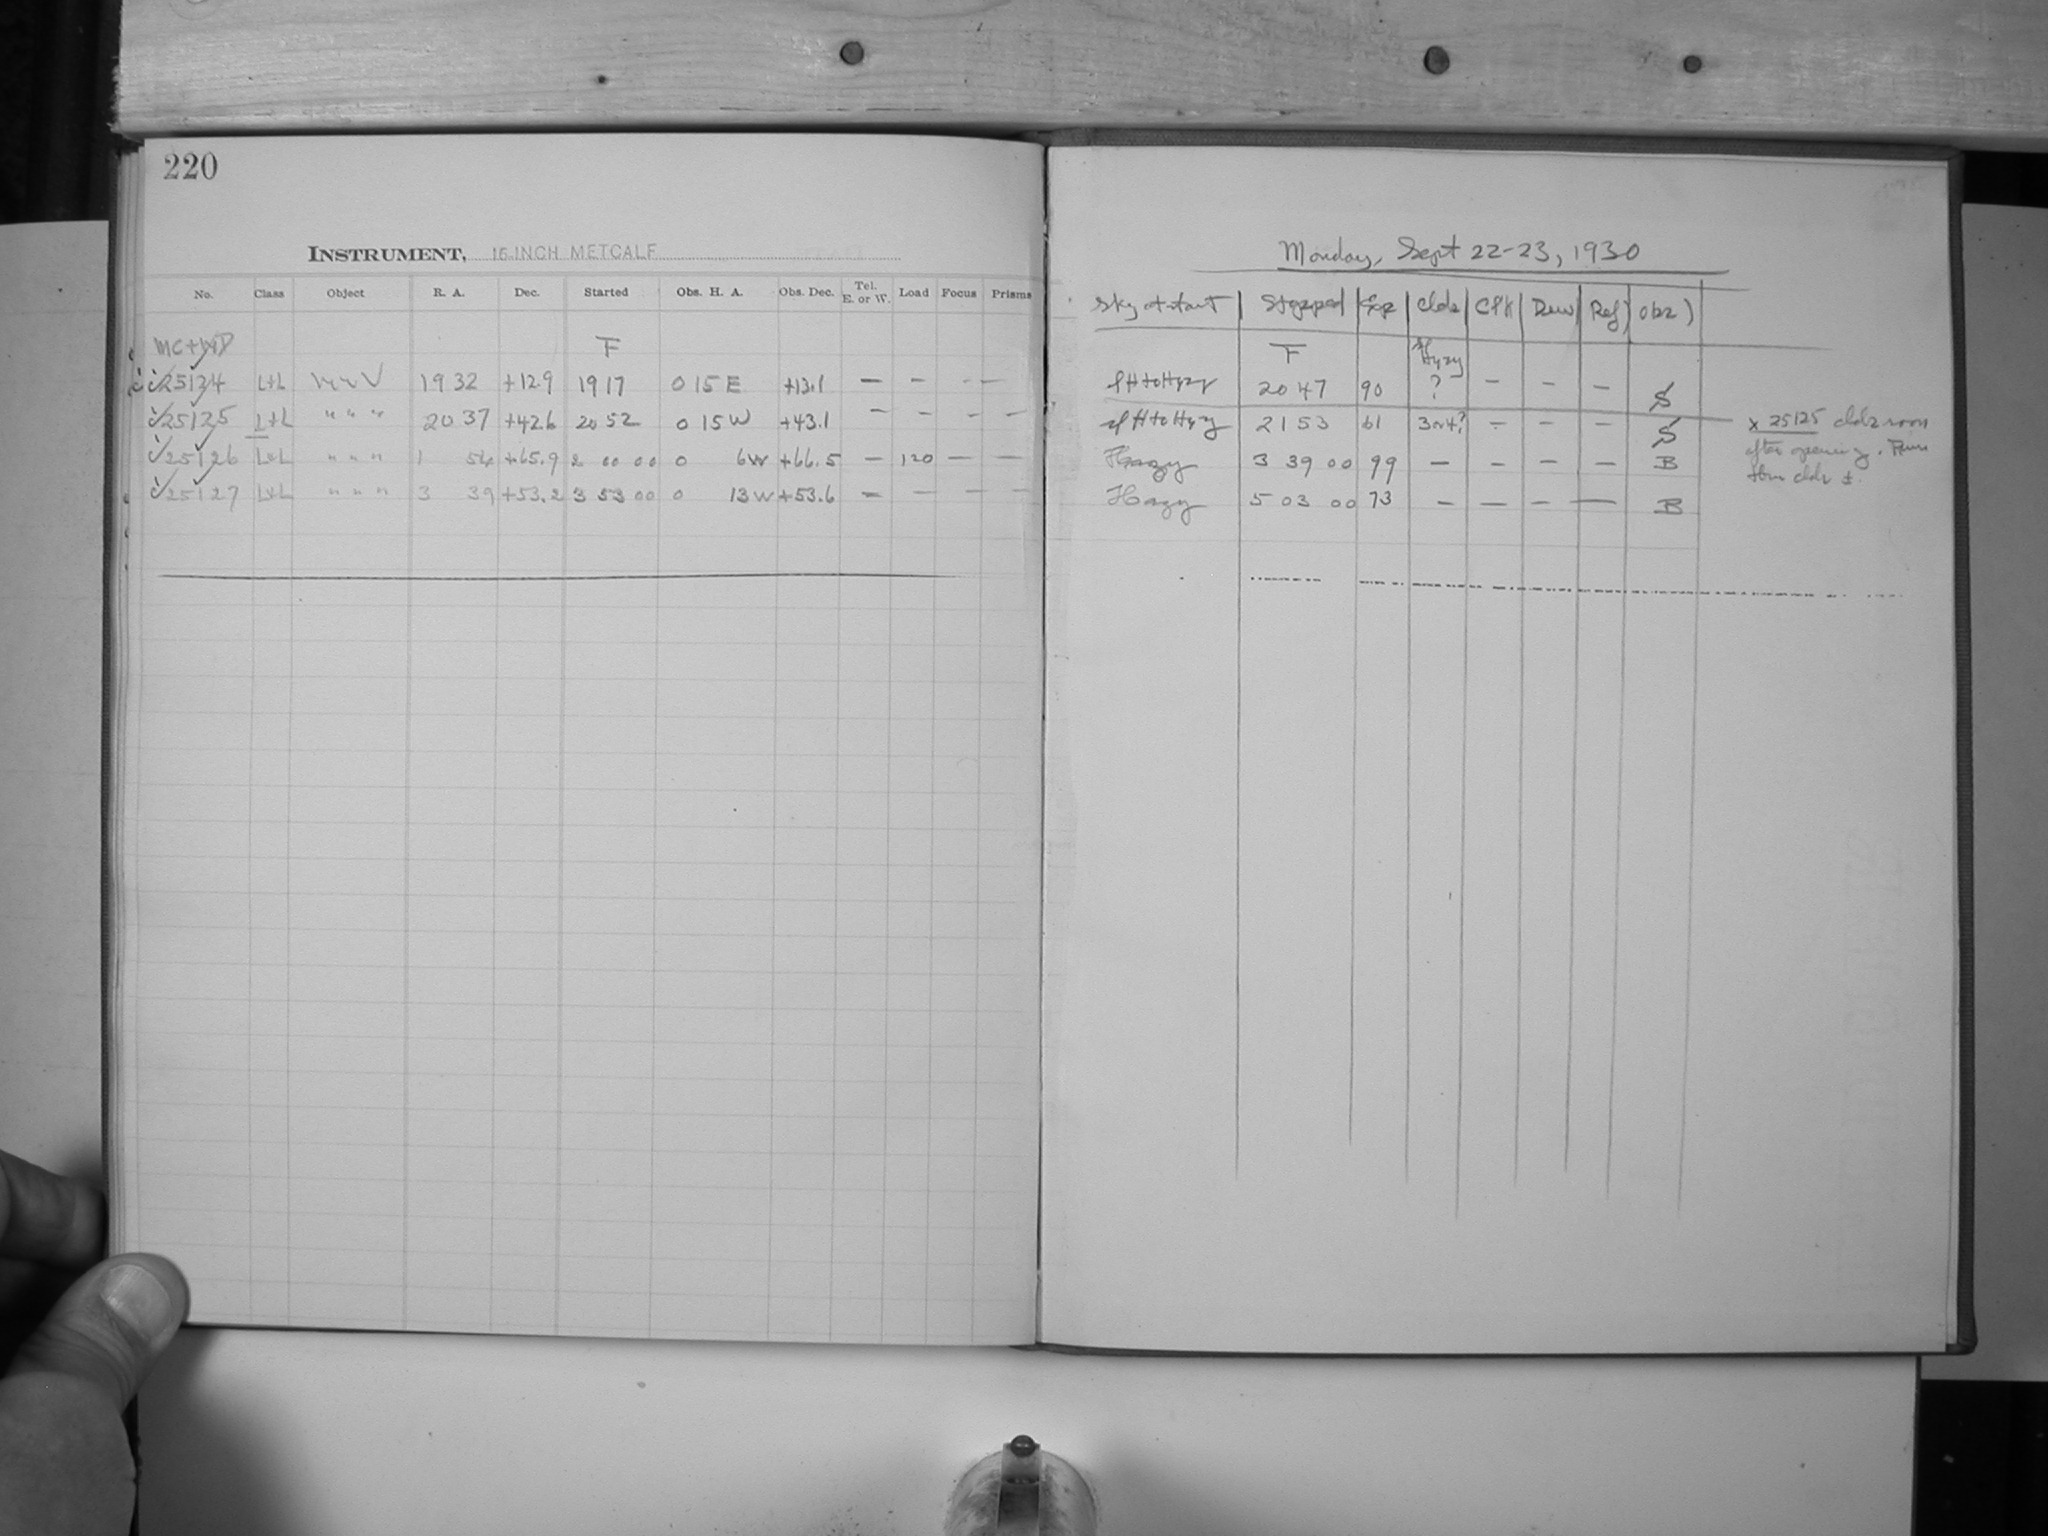 220
INSTRUMENT, 16-INCH METCALF
No. Class Object R. A. Dec. Started Obs. H. A. Obs. Dec. Tel. E. or W. Load Focus Prisms
MC F
25124 L+L 19 32 +12.9 19 17 0 15 E +13.1 — — - —
25125 L+L " " " 20 37 +42.6 20 52 0 15 W +43.1 — — - —
25126 L+L " " " 1 54 +65.9 2 00 00 0 6W +66.5 — 120 — —
25127 L+L " " " 3 39 +53.2 3 53 00 0 13W +53.6 — — — —
Monday, Sept 22-23, 1930
Sky at start Stopped Exp Clds Clk Dew Ref obs
F Hzy
20 47 90 ? — — — S
21 53 61 3 or 4? — — — S
Hazy 3 39 00 99 — — — — B
Hazy 5 03 00 73 — — — — B
x 25125 clds soon
after opening.